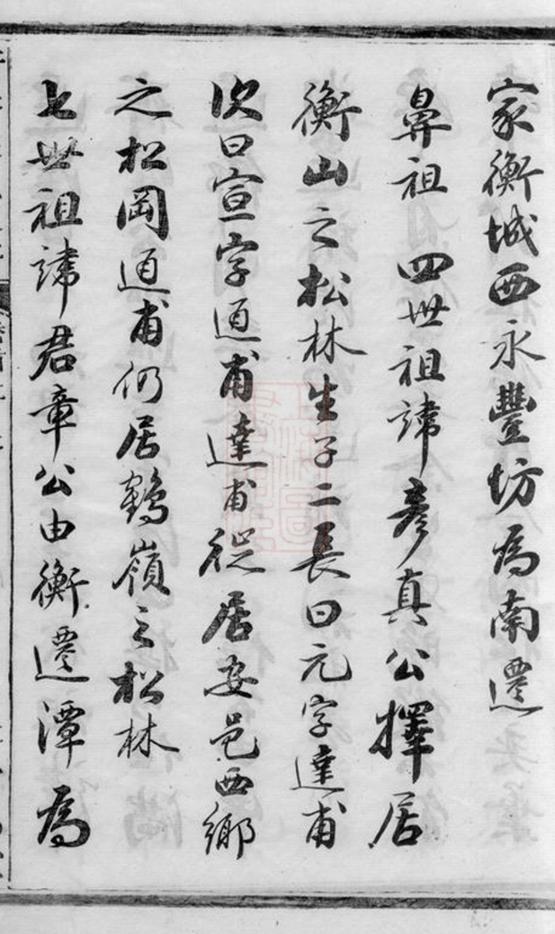 家衡城西永豐坊為南遷
鼻祖四世祖諱彥真公擇居
衡山之松林生子二長曰元字達甫
次曰宣字通甫達甫徙居安邑西鄉
之松岡通甫仍居鶴嶺之松林
七世祖諱君章公由衡遷潭為